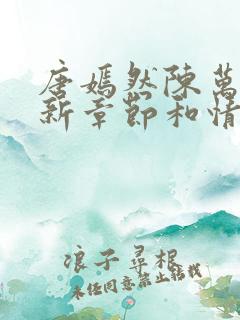 唐嫣然陳萬
新章節和情
浪子尋根
未经同意禁止转载